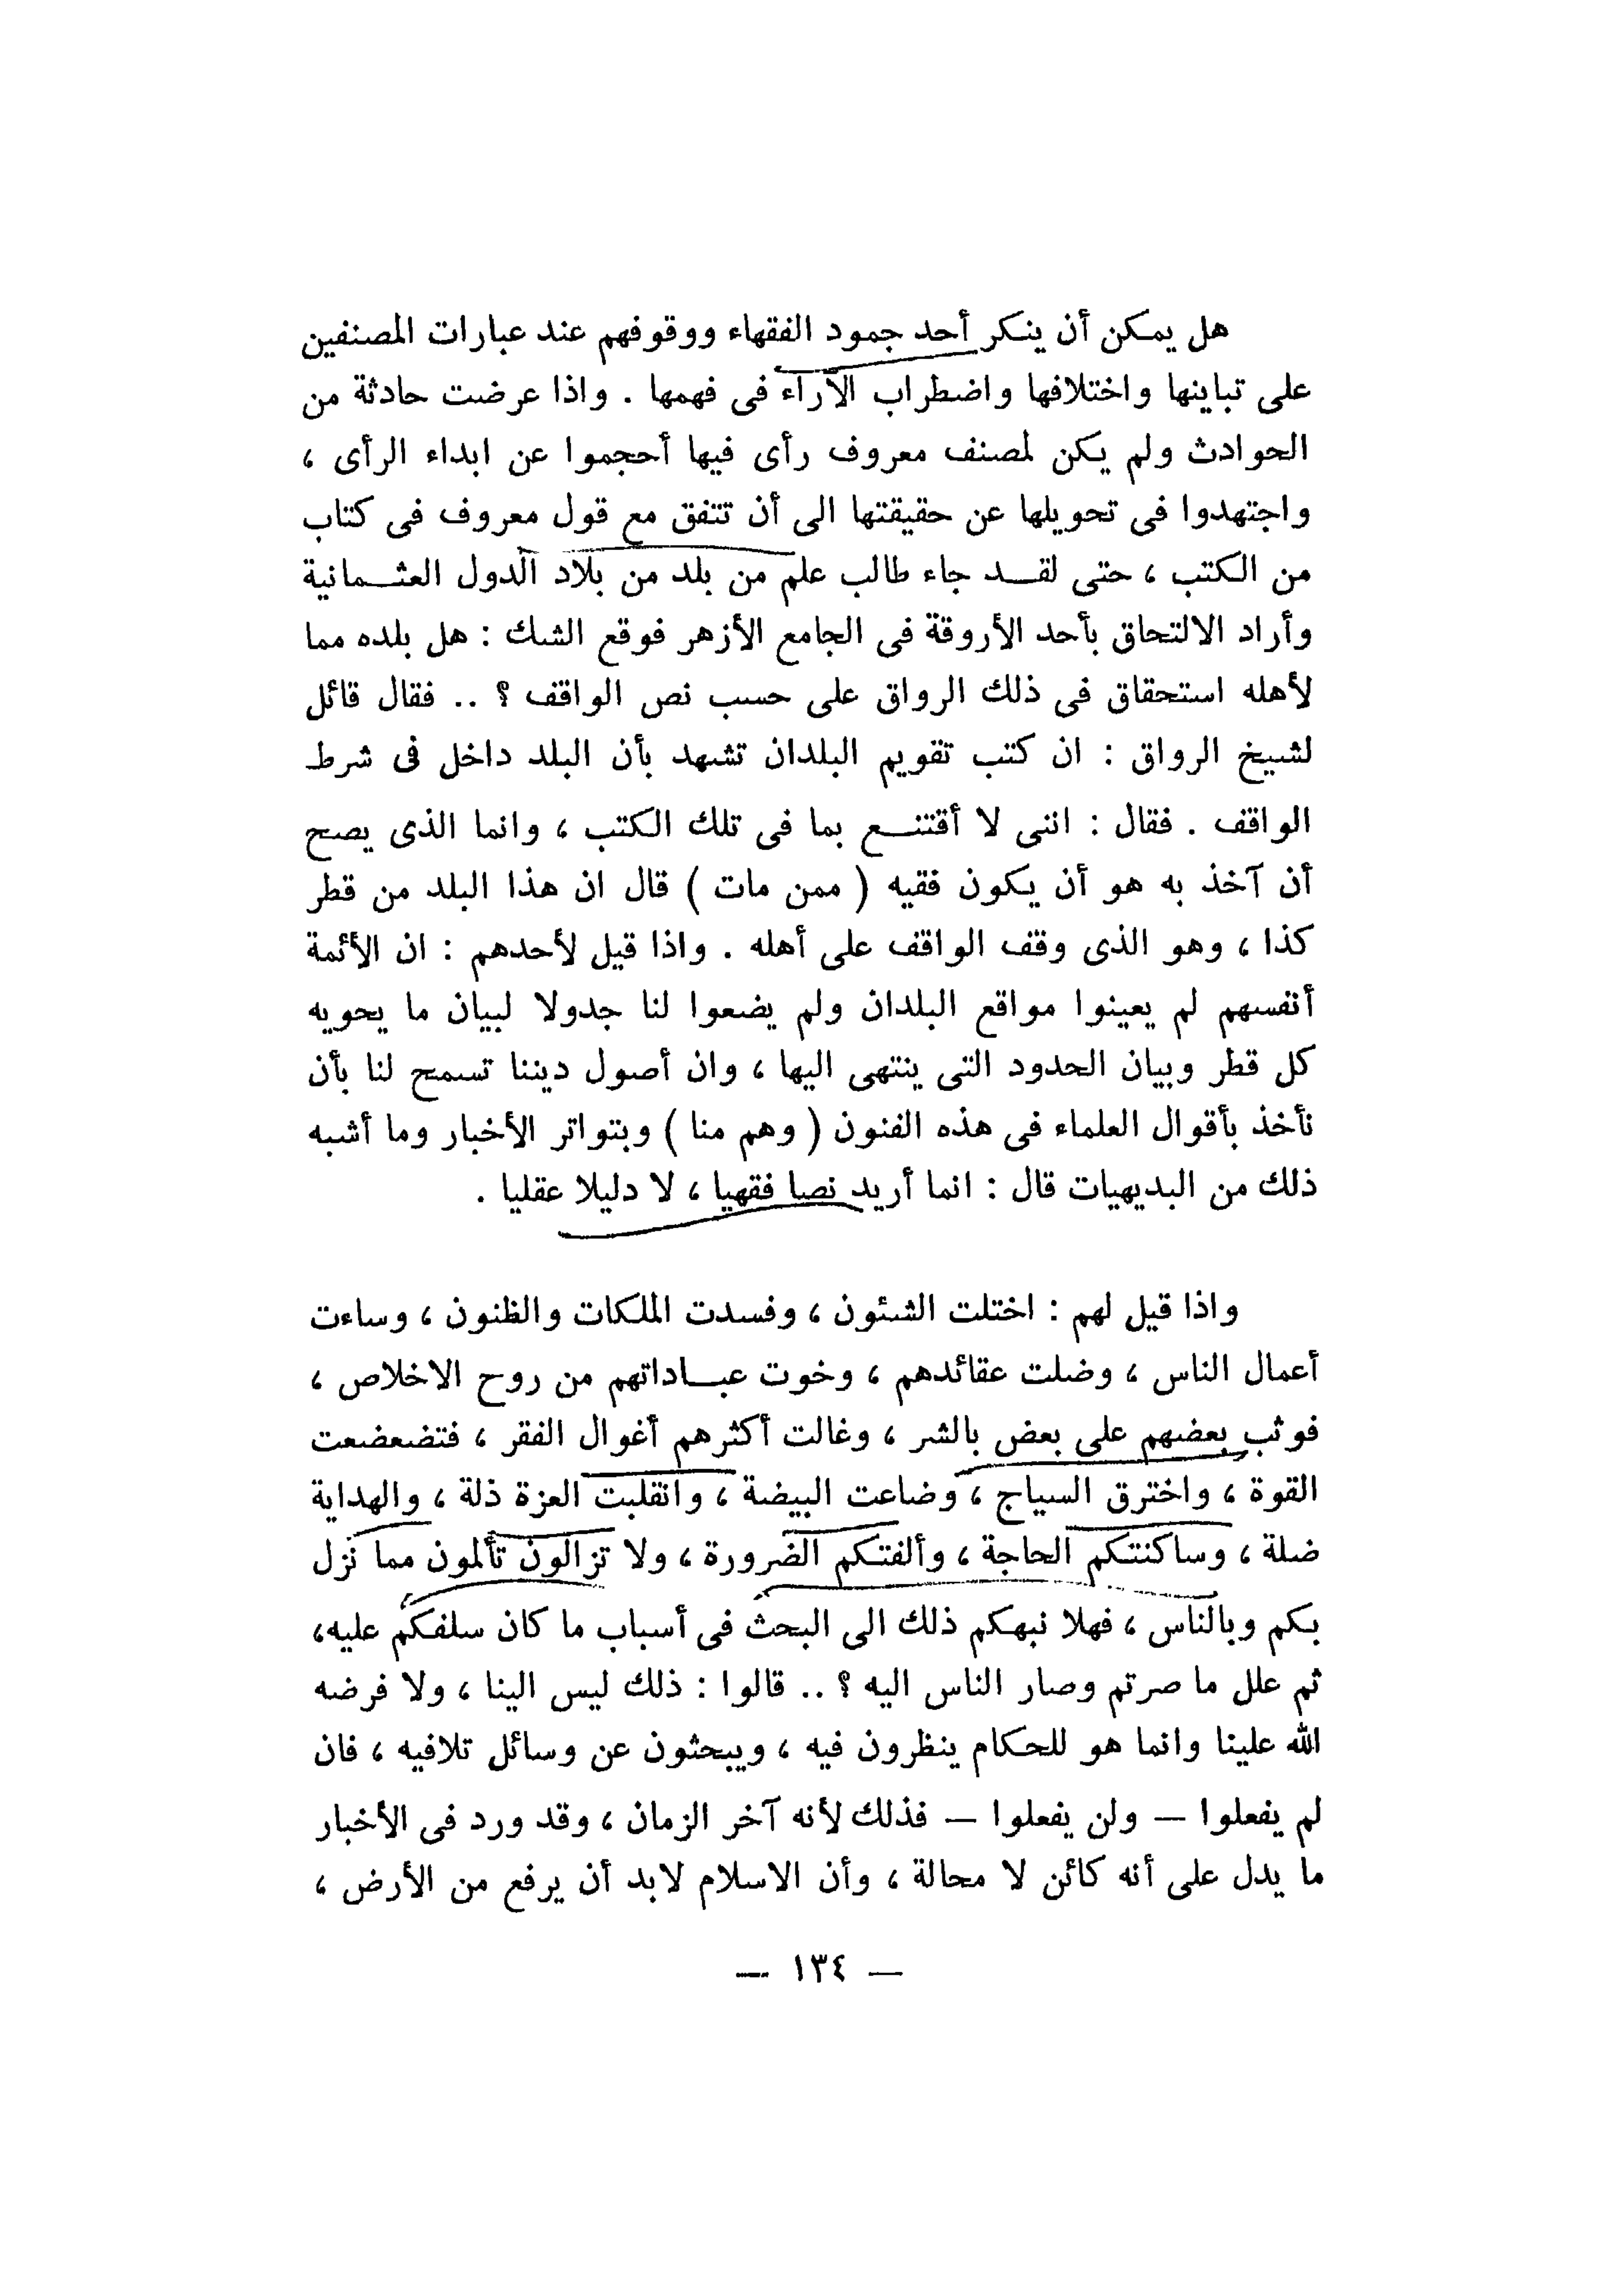 هل يمكن أن ينكر أحد جمود الفقهاء ووقوفهم عند عبارات المصنفين
على تباينها واختلافها واضطراب الآراء فى فهمها . واذا عرضت حادثة من
الحوادث ولم يكن لمصنف معروف رأى فيها أحجموا عن ابداء الرأى ،
واجتهدوا فى تحويلها عن حقيقتها الى أن تتفق مع قول معروف فى كتاب
من الكتب ، حتى لقد جاء طالب علم من بلد من بلاد الدول العثمانية
وأراد الالتحاق بأحد الأروقة فى الجامع الأزهر فوقع الشك : هل بلده مما
لأهله استحقاق فى ذلك الرواق على حسب نص الواقف ؟ .. فقال قائل
لشيخ الرواق : ان كتب تقويم البلدان تشهد بأن البلد داخل فى شرط
الواقف . فقال : اننى لا أقتنع بما فى تلك الكتب ، وانما الذى يصح
أن آخذ به هو أن يكون فقيه ( ممن مات ) قال ان هذا البلد من قطر
كذا ، وهو الذى وقف الواقف على أهله . واذا قيل لأحدهم : ان الأئمة
أنفسهم لم يعينوا مواقع البلدان ولم يضعوا لنا جدولا لبيان ما يحويه
كل قطر وبيان الحدود التى ينتهى اليها ، وان أصول ديننا تسمح لنا بأن
نأخذ بأقوال العلماء فى هذه الفنون ( وهم منا ) وبتواتر الأخبار وما أشبه
ذلك من البديهيات قال : انما أريد نصا فقهيا ، لا دليلا عقليا .
واذا قيل لهم : اختلت الشئون ، وفسدت الملكات والظنون ، وساءت
أعمال الناس ، وضلت عقائدهم ، وخوت عباداتهم من روح الاخلاص ،
فوثب بعضهم على بعض بالشر ، وغالت أكثرهم أغوال الفقر ، فتضعضعت
القوة ، واخترق السياج ، وضاعت البيضة ، وانقلبت العزة ذلة ، والهداية
ضلة ، وساكنتكم الحاجة ، وألفتكم الضرورة ، ولا تزالون تألمون مما نزل
بكم وبالناس ، فهلا نبهكم ذلك الى البحث فى أسباب ما كان سلفكم عليه،
ثم علل ما صرتم وصار الناس اليه ؟ .. قالوا : ذلك ليس الينا ، ولا فرضه
الله علينا وانما هو للحكام ينظرون فيه ، ويبحثون عن وسائل تلافيه ، فان
لم يفعلوا — ولن يفعلوا — فذلك لأنه آخر الزمان ، وقد ورد فى الأخبار
ما يدل على أنه كائن لا محالة ، وأن الاسلام لابد أن يرفع من الأرض ،
— ١٣٤ —